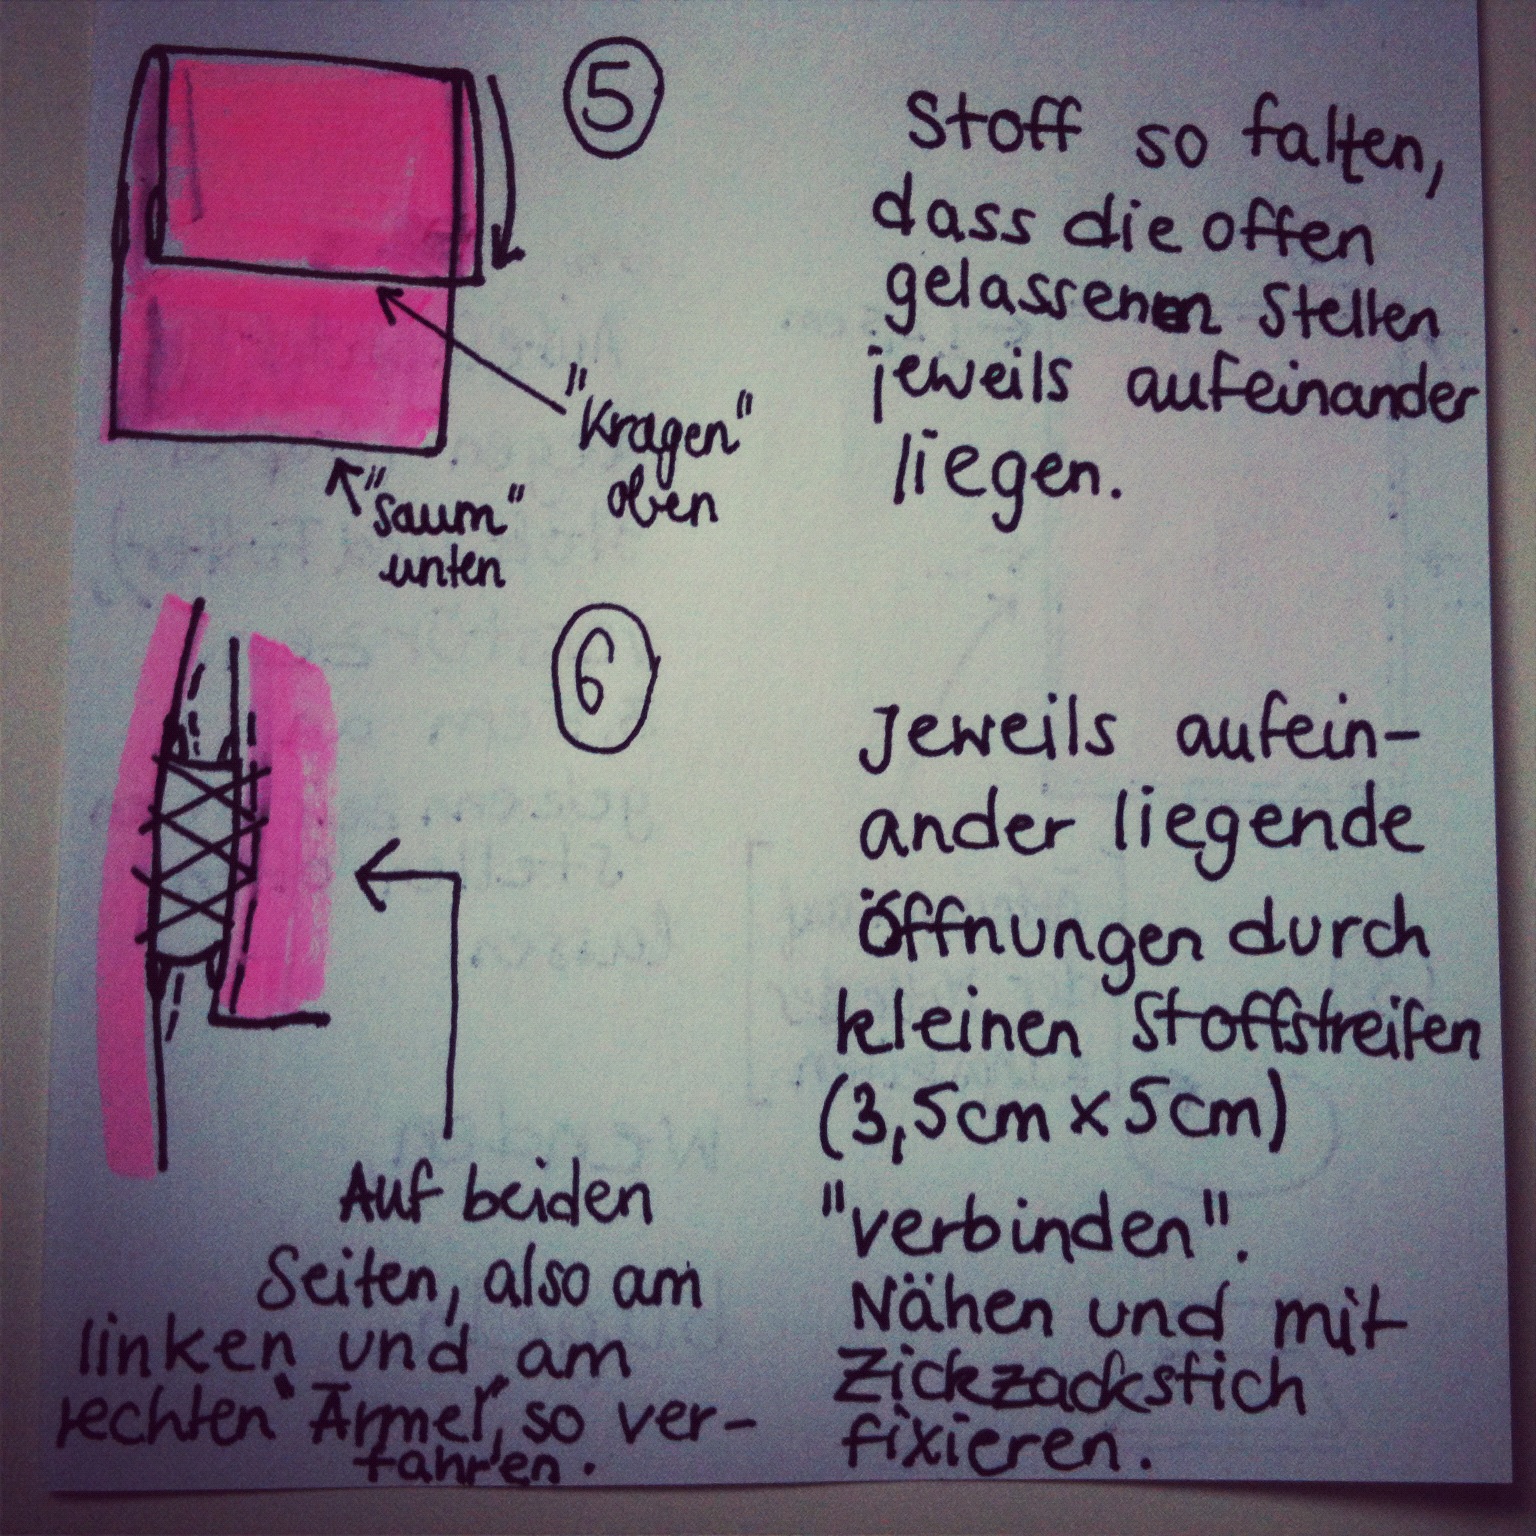 5
Stoff so falten,
dass die offen
gelassenen Stellen
jeweils aufeinander
liegen.
"Kragen"
oben
"Saum"
unten
6
Jeweils aufein-
ander liegende
Öffnungen durch
kleinen Stoffstreifen
(3,5cm x 5cm)
"verbinden".
Nähen und mit
Zickzackstich
fixieren.
Auf beiden
Seiten, also am
linken und am
rechten "Ärmel", so ver-
fahren.